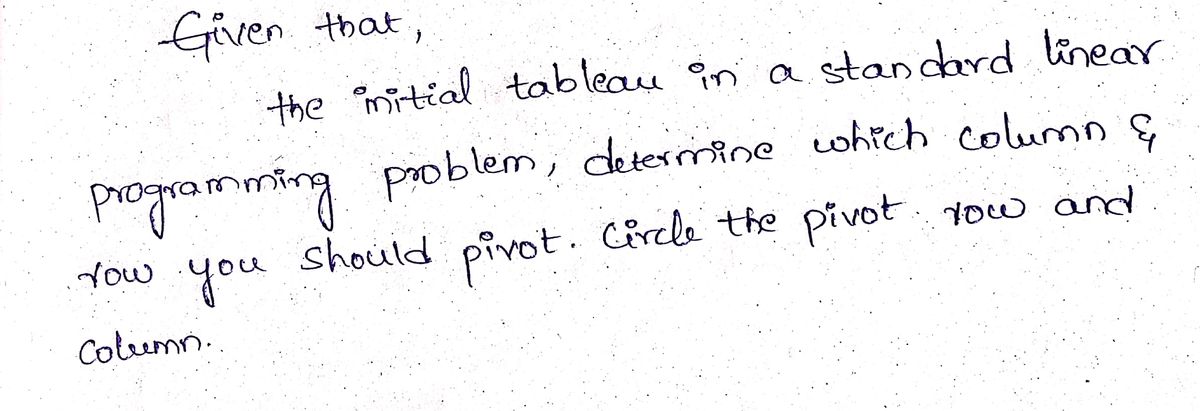 Given that,
the initial tableau in a standard linear
programming problem, determine which column &
row you should pivot. Circle the pivot row and
column.